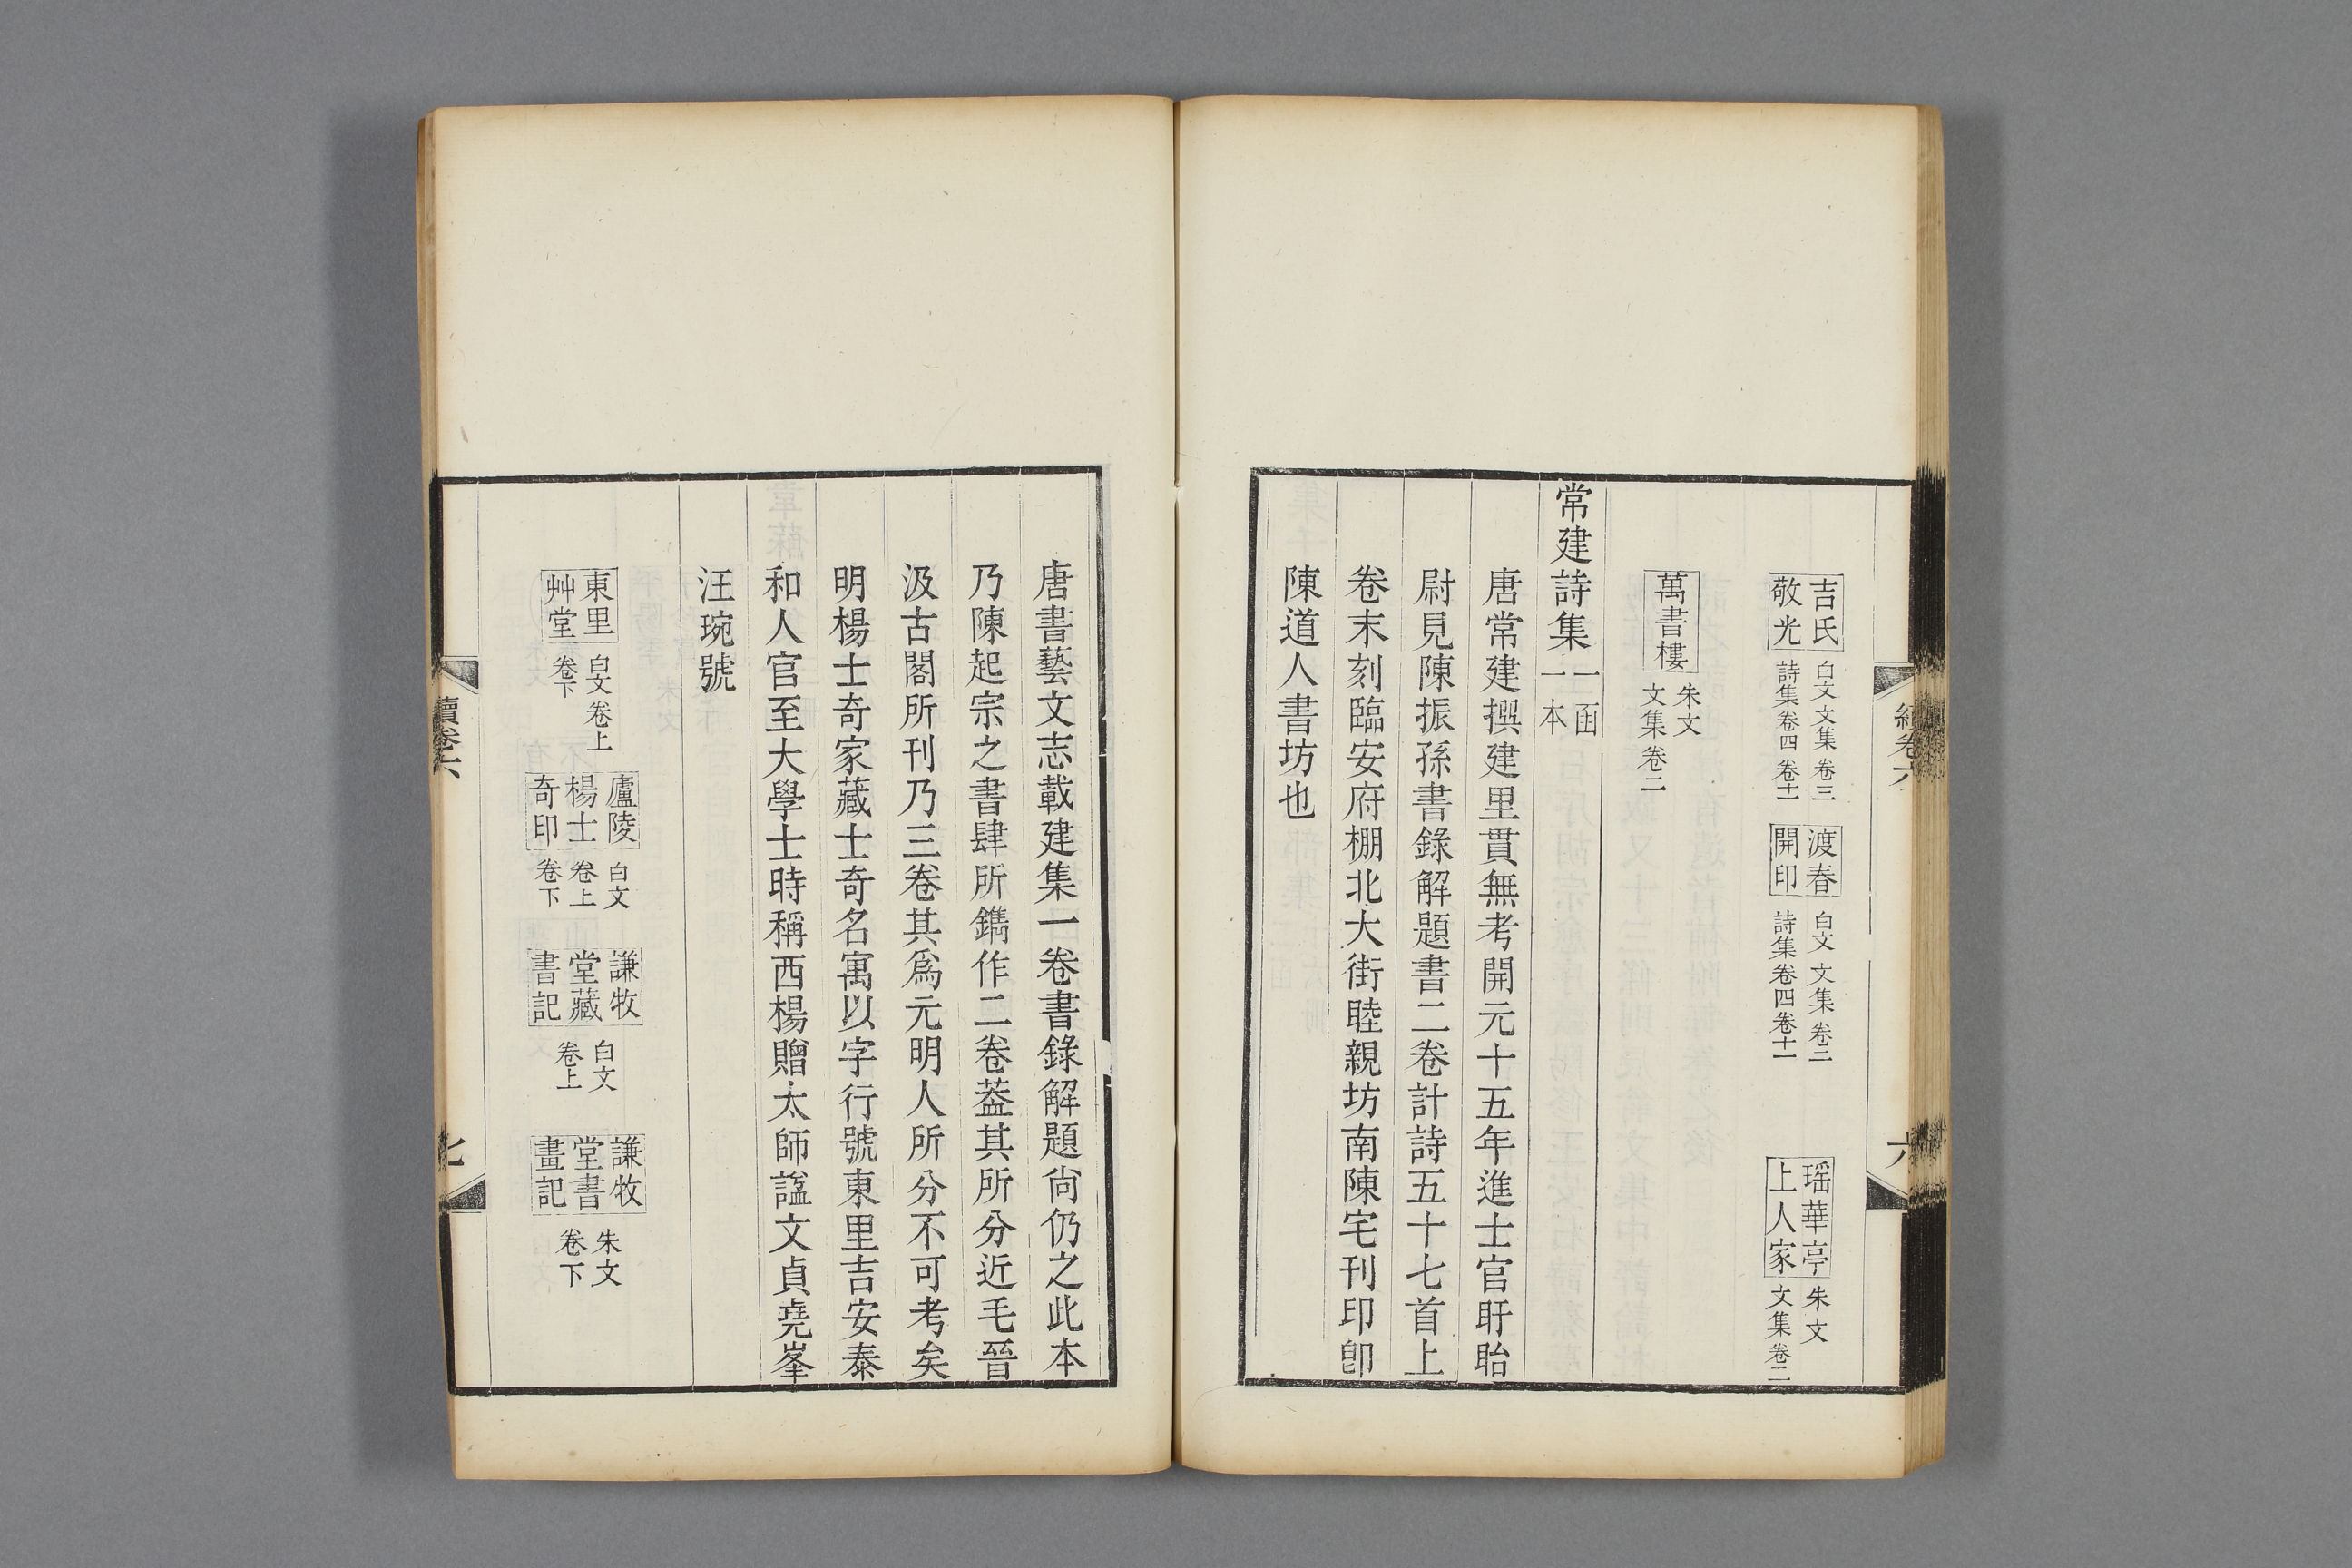 吉氏
敬光
白文 文集 卷三
詩集 卷四 卷十一
渡春
開印
白文 文集 卷二
詩集 卷四 卷十一
瑶華亭
上人家
朱文
文集 卷二
萬書樓
朱文
文集 卷二
常建詩集
一函
一本
唐常建撰建里貫無考開元十五年進士官盱眙
尉見陳振孫書錄解題書二卷計詩五十七首上
卷末刻臨安府棚北大街睦親坊南陳宅刊印卽
陳道人書坊也
續卷六
六
唐書藝文志載建集一卷書錄解題尙仍之此本
乃陳起宗之書肆所鐫作二卷葢其所分近毛晉
汲古閣所刊乃三卷其爲元明人所分不可考矣
明楊士奇家藏士奇名寓以字行號東里吉安泰
和人官至大學士時稱西楊贈太師諡文貞堯峯
汪琬號
東里
艸堂
白文 卷上
卷下
廬陵
楊士
奇印
白文
卷上
卷下
謙牧
堂藏
書記
白文
卷上
謙牧
堂書
畫記
朱文
卷下
續卷六
七